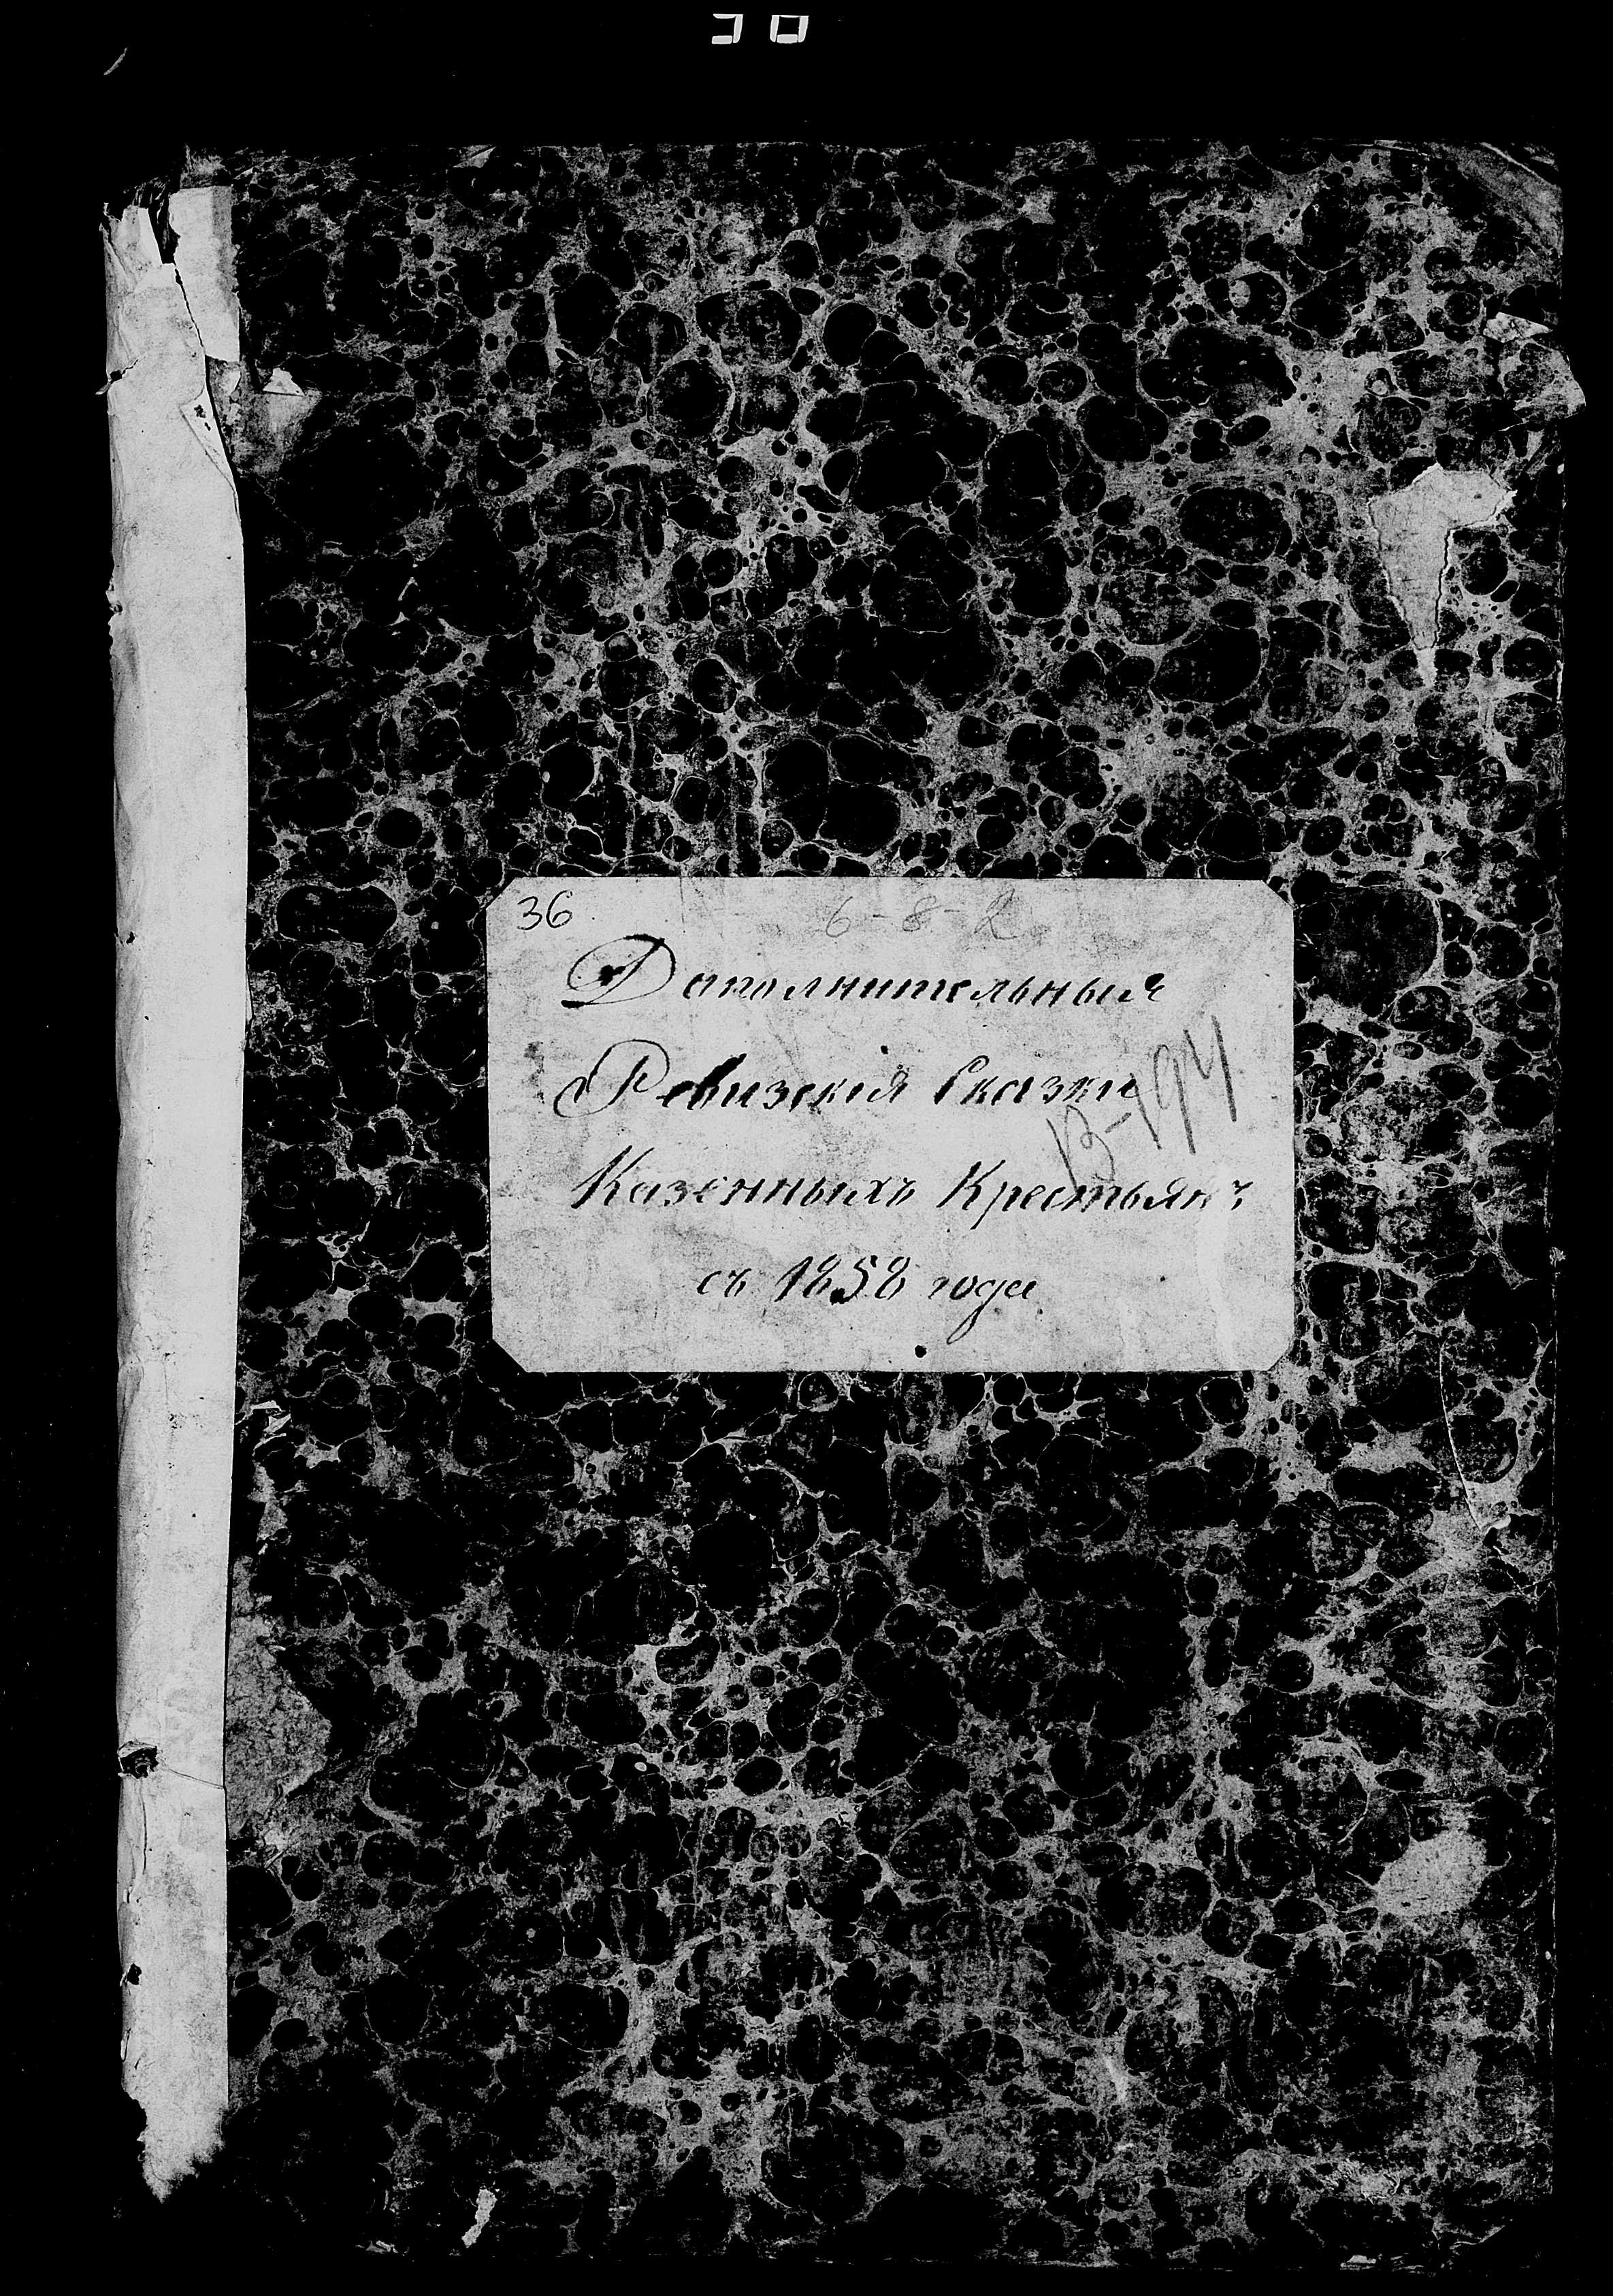 36
6-8-2
Дополнительныя
Ревизскія Сказки
13-194
Казенныхъ Крестьянъ
съ 1858 года